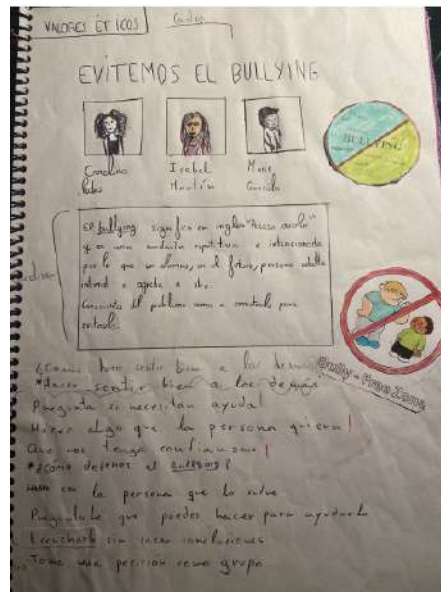 VALORES ÉTICOS
EVITEMOS EL BULLYING
Carolina
Isabel
Martín
BULLYING
El bullying significa en ingles "Acoso escolar"
y es una conducta repetitiva e intencionada
por lo que un alumno, en el futuro, persona adulta
intimida o agrede a otro.
del problema vamos a para
evitarlo.
Bully-Free Zone
¿Como hacer sentir bien a los demas
*Hacer sentir bien a los demás
Pregunta si necesitan ayuda!
Hacer algo que la persona quiera!
Que nos tenga confianza!
*¿Como detener el bullying?
con la persona que lo sufre
Preguntale que puedes hacer para ayudarlo
Escucharle sin sacar conclusiones
Toma una como grupo